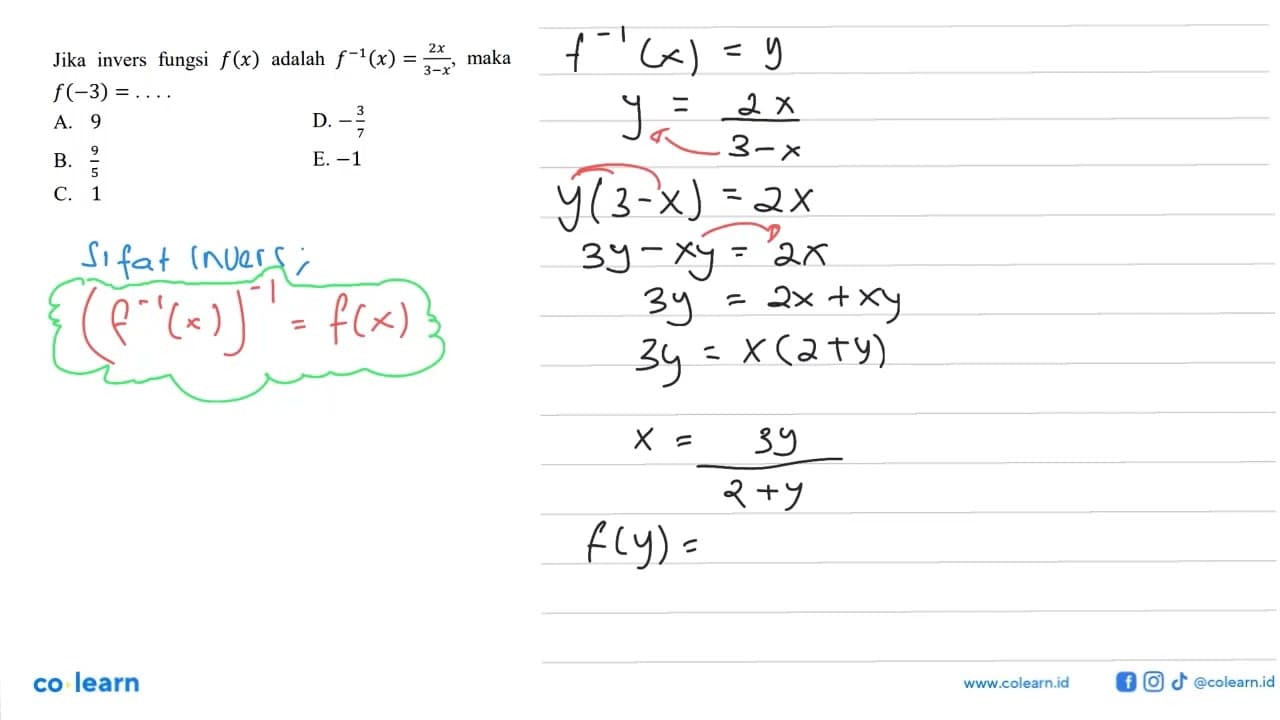 Jika invers fungsi f(x) adalah f⁻¹(x) = 2x/(3−x), maka
f(−3) = ....
A. 9
B. 9/5
C. 1
D. −3/7
E. −1
Sifat invers;
(f⁻¹(x))⁻¹ = f(x)
f⁻¹(x) = y
y = 2x/(3−x)
y(3−x) = 2x
3y − xy = 2x
3y = 2x + xy
3y = x(2+y)
x = 3y/(2+y)
f(y) =
co learn
www.colearn.id
@colearn.id